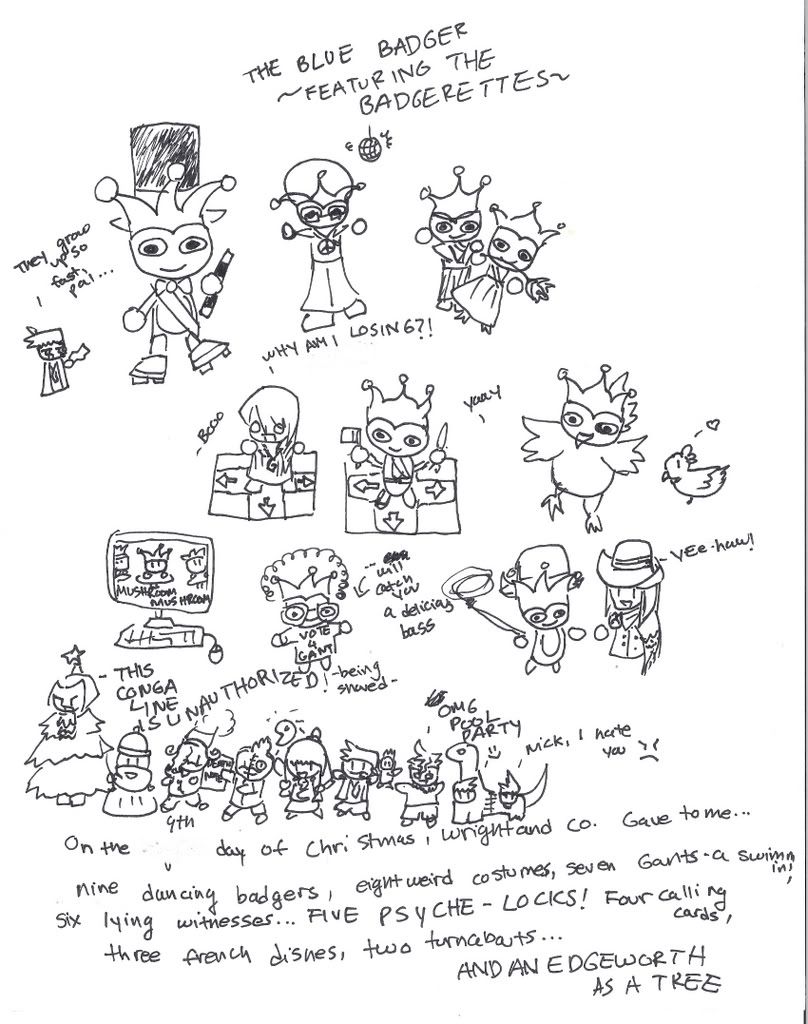 THE BLUE BADGER
~FEATURING THE
BADGERETTES~
THEY grow
up so
fast,
pal...
WHY AM I LOSING?!
BOOO
yaay
MUSHROOM
MUSHROOM
... will
catch
you
a delicious
bass
VOTE
4
GANT
YEE-haw!
THIS
CONGA
LINE
IS UNAUTHORIZED!
-being
shoved-
OMG
POOL
PARTY
Nick, I hate
you
DEATH
NOTE
9th
On the day of Christmas, Wright and co. Gave to me...
nine dancing badgers, eight weird costumes, seven Gants-a swimm
in',
six lying witnesses... FIVE PSYCHE-LOCKS! Four calling
cards,
three french dishes, two turnabouts...
AND AN EDGEWORTH
AS A TREE